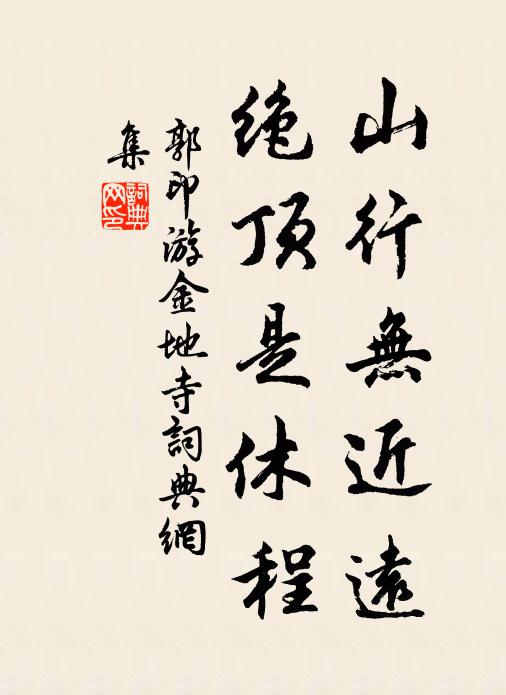 山行無近遠
绝顶是休程
郭印游金地寺詞典網
集
詞典
网印